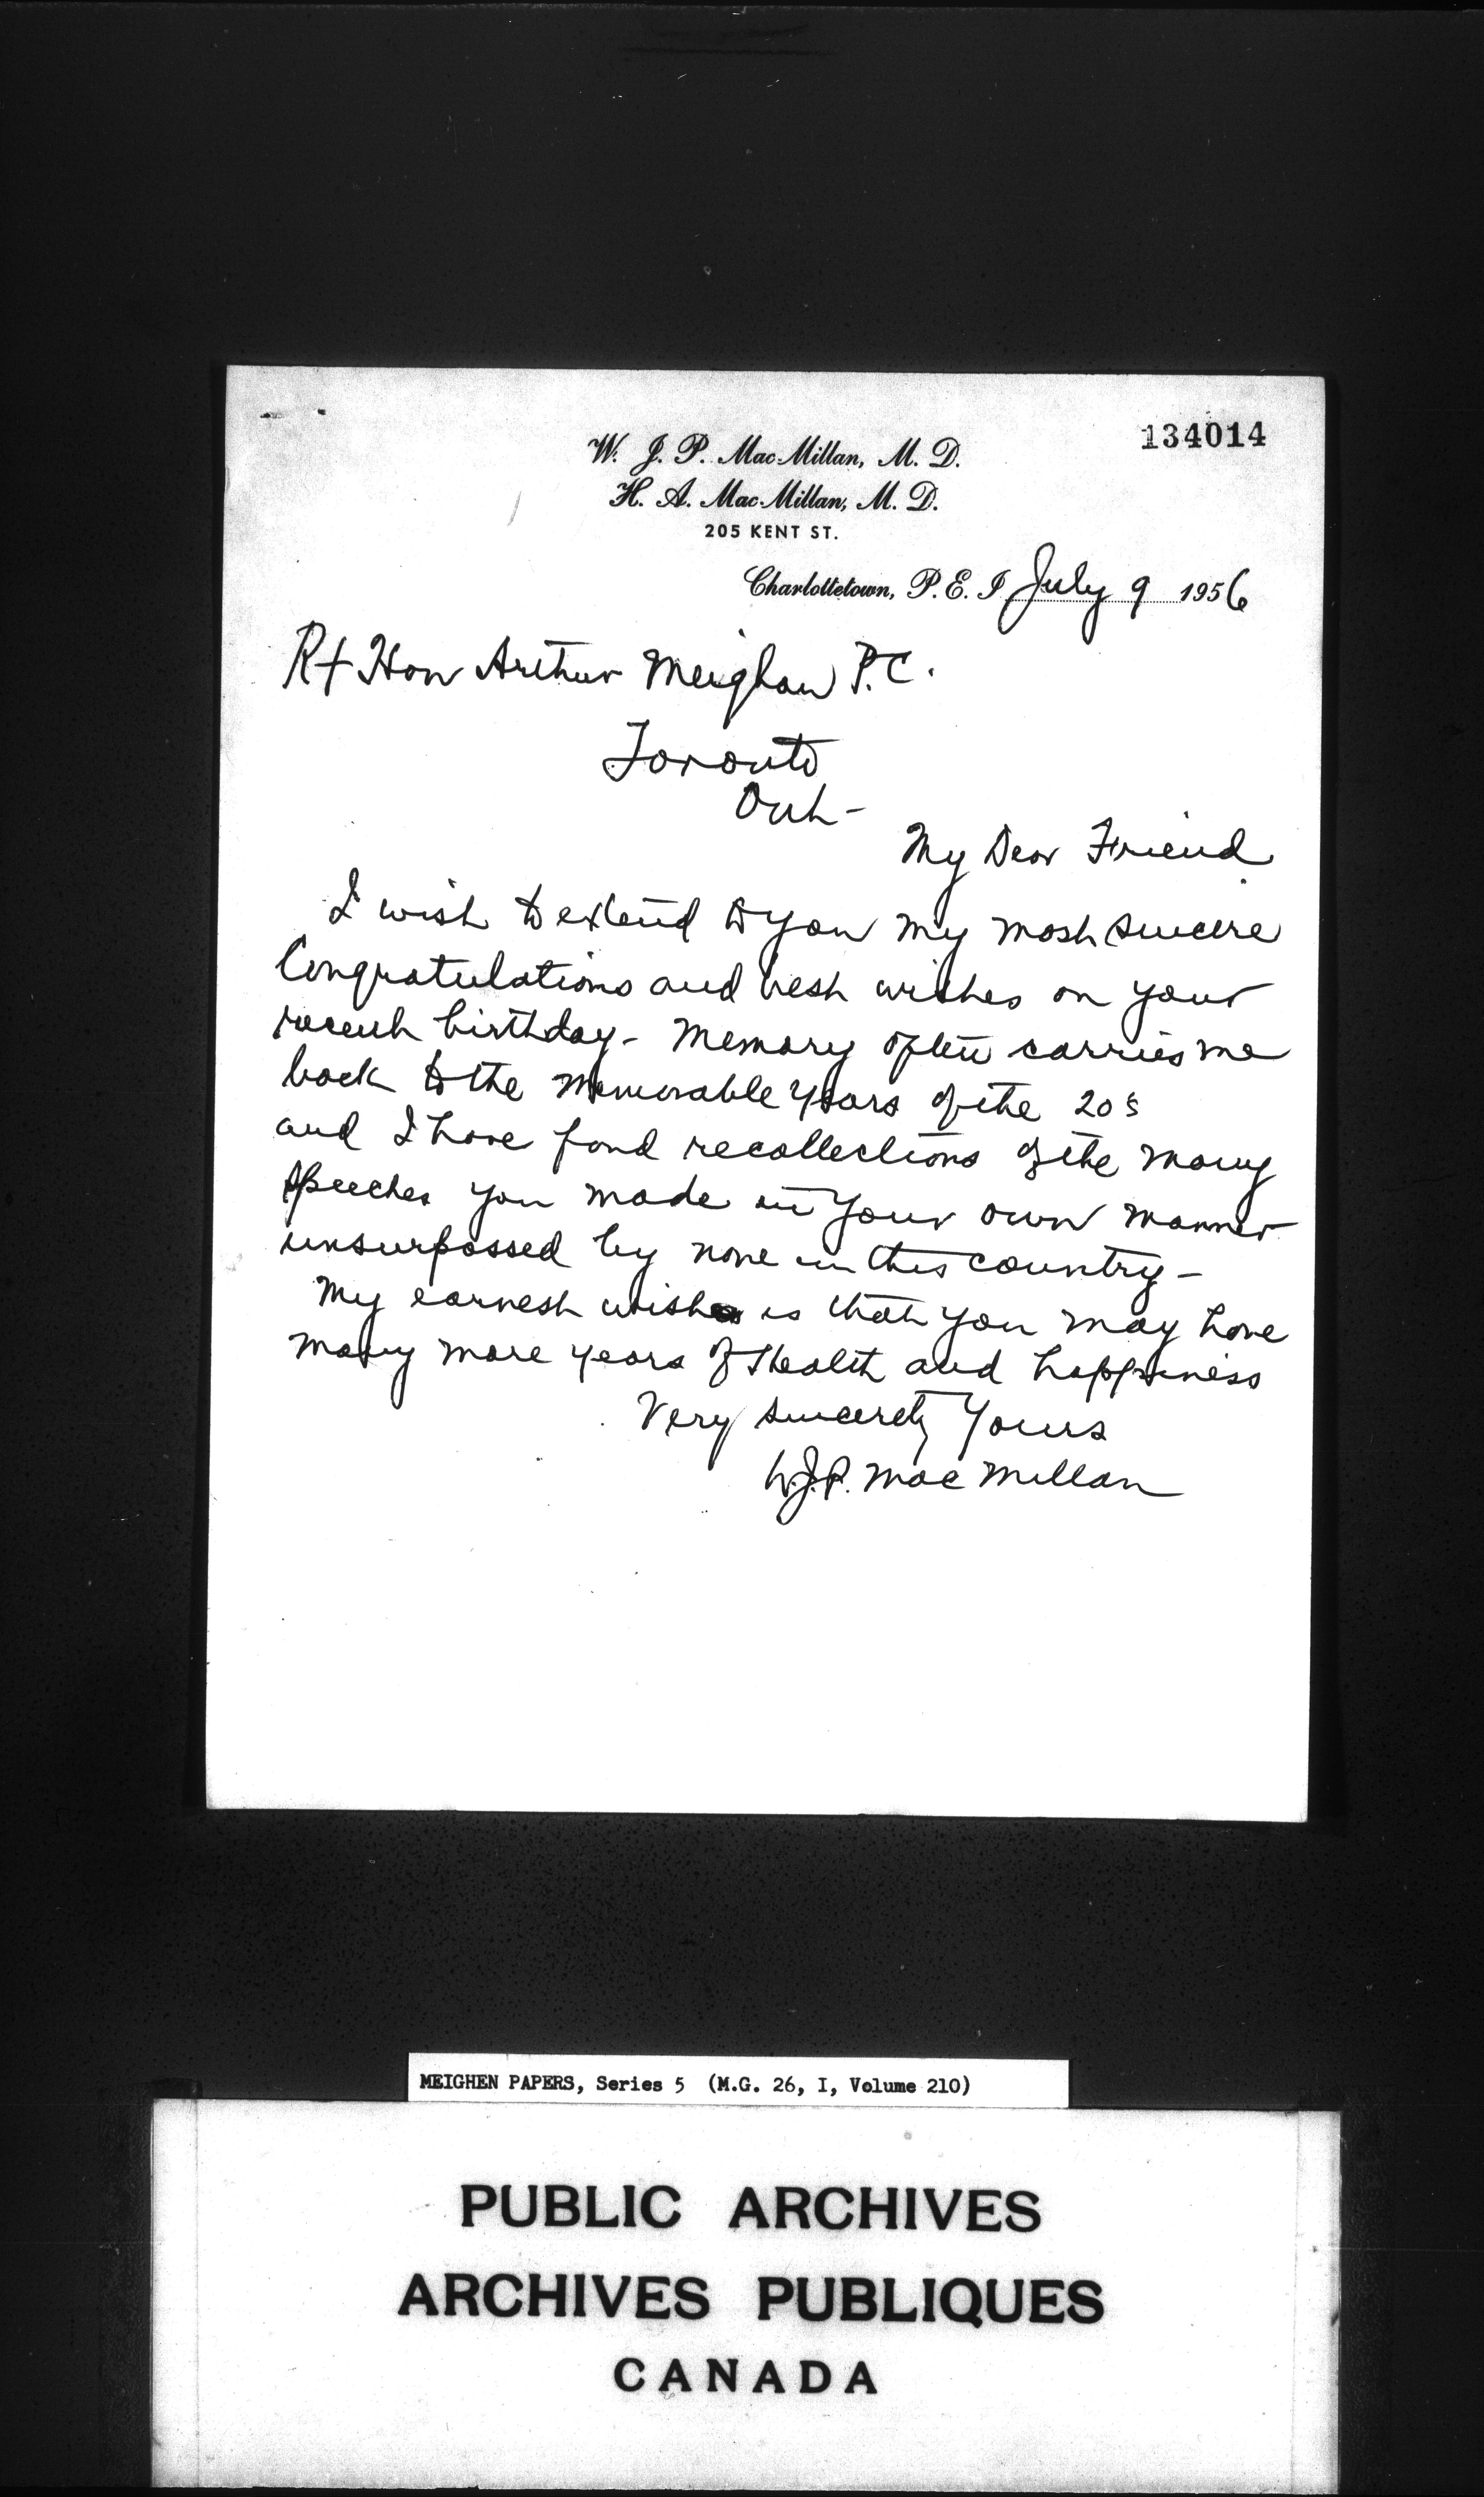 134014
W. J. P. MacMillan, M. D.
H. A. MacMillan, M. D.
205 KENT ST.
Charlottetown, P. E. I. July 9 1956
Rt Hon Arthur Meighan P.C.
Toronto
Ont-
My Dear Friend
I wish to extend to you my most sincere
Congratulations and best wishes on your
recent birthday - Memory often carries me
back to the memorable years of the 20s
and I have fond recollections of the many
speeches you made in your own manner
unsurpassed by none in this country -
My earnest wish is that you may have
many more years of Health and happiness
Very sincerely Yours
W.J.P. MacMillan
MEIGHEN PAPERS, Series 5 (M.G. 26, I, Volume 210)
PUBLIC ARCHIVES
ARCHIVES PUBLIQUES
CANADA